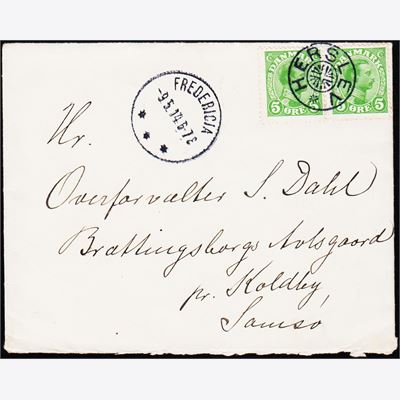 DANMARK DANMARK
HERSLEV
5 ØRE 5 5 ØRE 5
FREDERICIA
9.5.14.6-7E
Hr.
Overforvalter S. Dahl
Brattingsborgs Avlsgaard
pr. Koldby,
Samsø